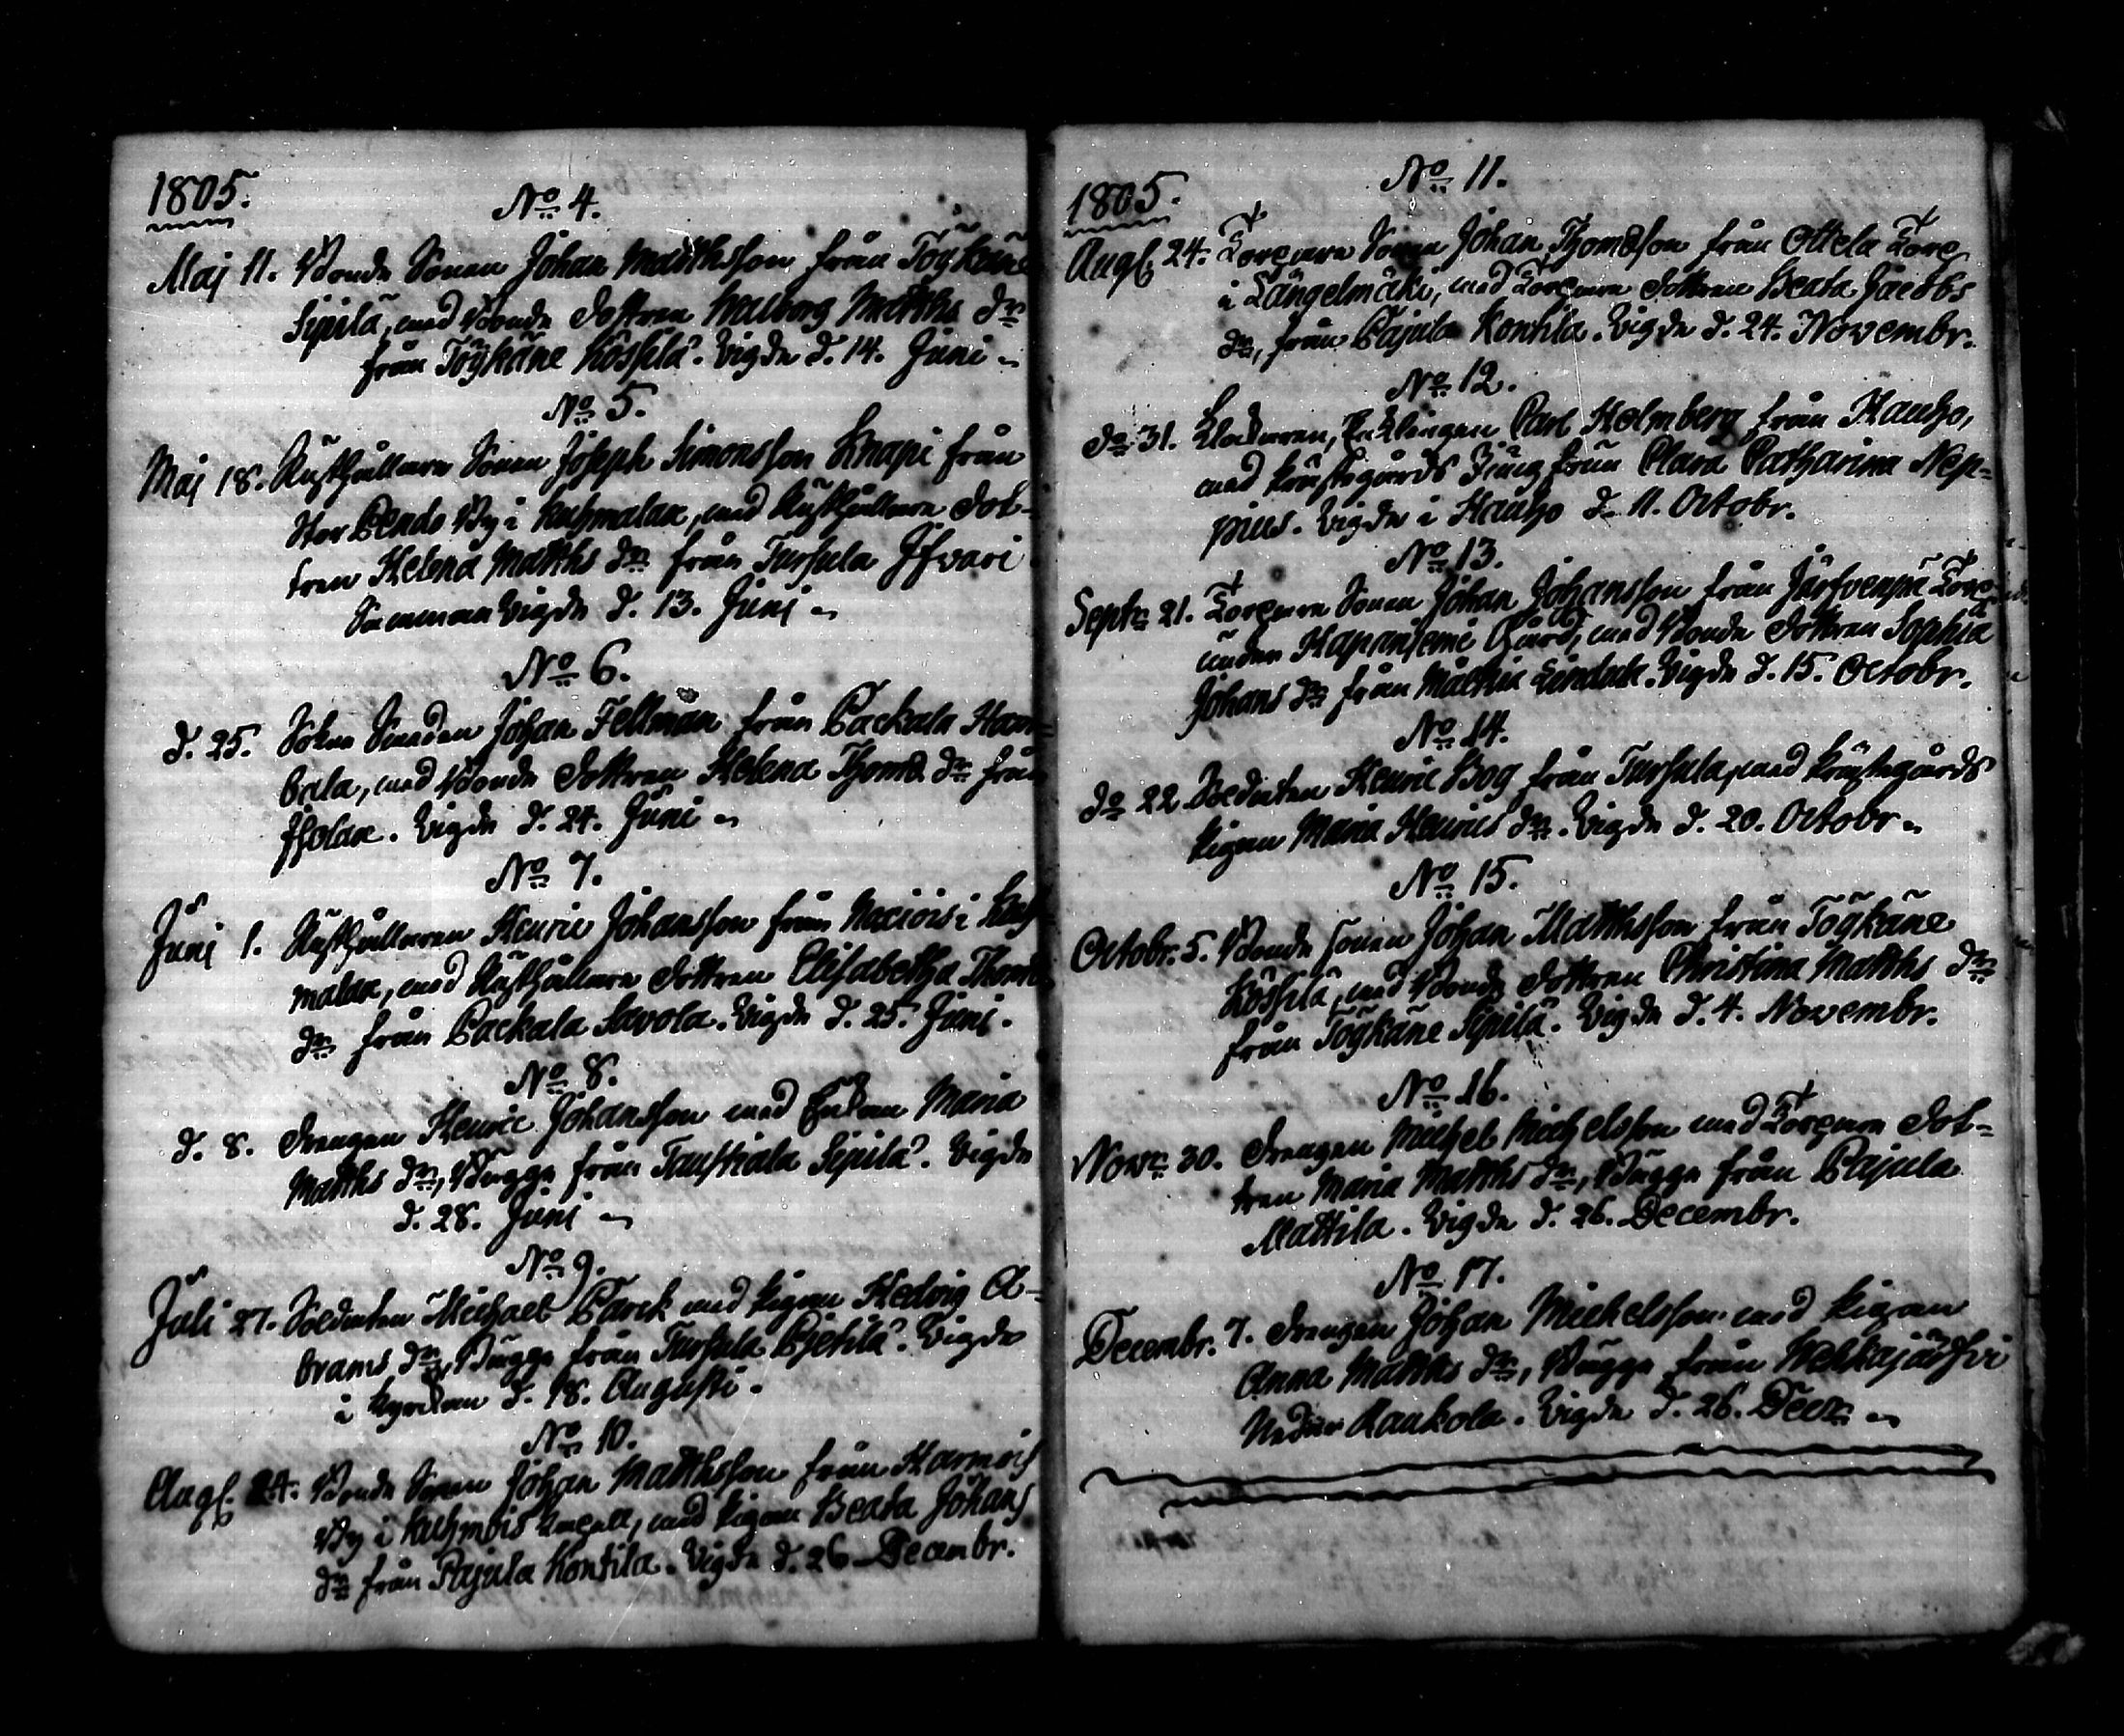 1805.
No 4.
Maj 11. Bonde Sonen Johan Matthsson från Töykäne
Sipilä, med Bonde Dottren Walborg Matths dr
från Töykäne Kössilä. Vigde d. 14. Juni
No 5.
Maj 18. Rusthållare Sonen Joseph Simonsson Knapi från
Stor Pendo By i Kuhmalax, med Rusthållare Dot-
tren Helena Matths dr från Tursula Iswari
Samman Vigde d. 13. Junj
No 6.
d. 25. Sokne Smeden Johan Fellman från Packala Ham-
bala, med Bonde Dottren Helena Thomæ dr från
Isolax. Vigde d. 24. Juni
No 7.
Junj 1. Rusthållaren Henric Johansson från i Kuh
malax, med Rusthållare Dottren Elisabetha Thomæ
dr från Packala Savola. Vigde d. 25. Junj.
No 8.
d. 8. Drengen Henric Johansson med Enkan Maria
Matths dr, Bägge från Taustiala Sipilä. Vigde
d. 28. Junj
No 9.
Juli 27. Soldaten Michael Parck med Pigan Hedvig A-
brams dr, Bägge från Tursula Pjetilä. Vigde
i Kyrkan d. 18. Augusti.
No 10.
Aug. 24. Bonde Sonen Johan Matthsson från Harmois
By i Kuhmois Capell, med Pigan Beata Johans
dr från Pajula Kontila. Vigde d. 26 Decembr.
1805.
No 11.
Aug. 24. Torpare Sonen Johan Thomæson från Ollela Torp
i Längelmäki, med Torpare Dottren Beata Jacobs
dr, från Pajula Kontila. Vigde d. 24. Novembr.
No 12.
do 31. Klockaren, Enklingen Carl Holmberg från Hauho,
med Prästgårds Jungfrun Clara Catharina Nep-
pius. Vigde i Hauho d. 11. Octobr.
No 13.
Septr 21. Torpare Sonen Johan Johansson från Järfvenpä Torp
under Hapaniemi Gård, med Bonde Dottren Sophia
Johans dr från Lindula. Vigde d. 15. Octobr.
No 14.
do 22 Soldaten Henric Bog från Tursula, med Prästegårds
Pigan Maria Henrics dr. Vigde d. 20. Octobr.
No 15.
Octobr. 5. Bonde sonen Johan Matthsson från Töykäne
Kössilä, med Bonde Dottren Christina Matths dr
från Töykäne Sipilä. Vigde d. 4. Novembr.
No 16.
Novr 30. Drengen Michel Michelsson med Torpare Dot-
tren Maria Matths dr, Bägge från Pajula
Mattila. Vigde d. 26. Decembr.
No 17.
Decembr. 7. Drengen Johan Michelsson med Pigan
Anna Matths dr, Bägge från Wehkajärfvi
Nedre Raukola. Vigde d. 26. Decr